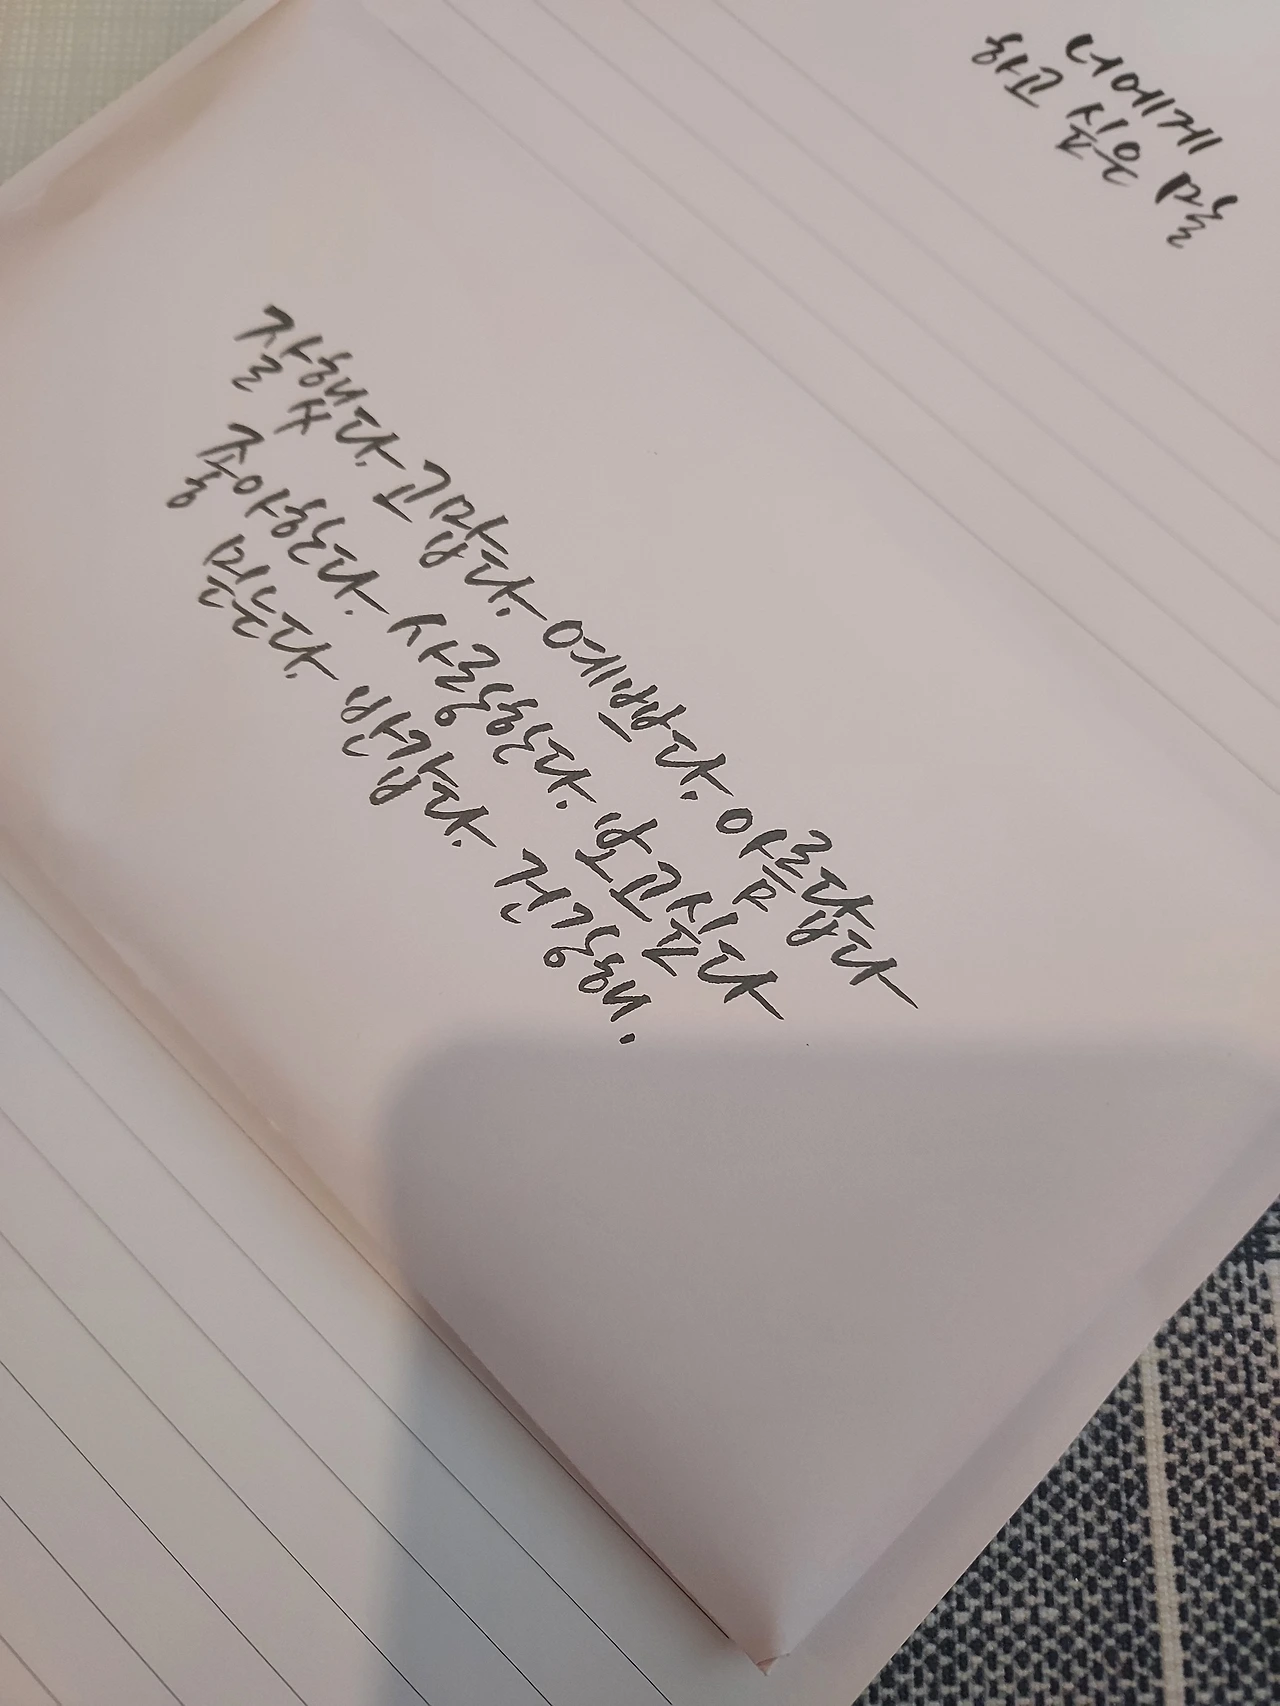 너에게
하고 싶은 말
잘했다. 고맙다. 예쁘다. 아름답다
좋아한다. 사랑한다. 보고싶다
믿는다. 반갑다. 건강해.